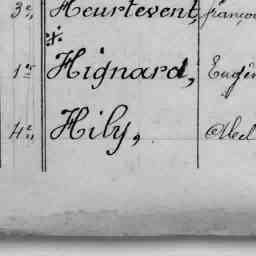 3e, Heurtevent, françoi
1er Hignard, Eugèn
4e, Hily, Abel